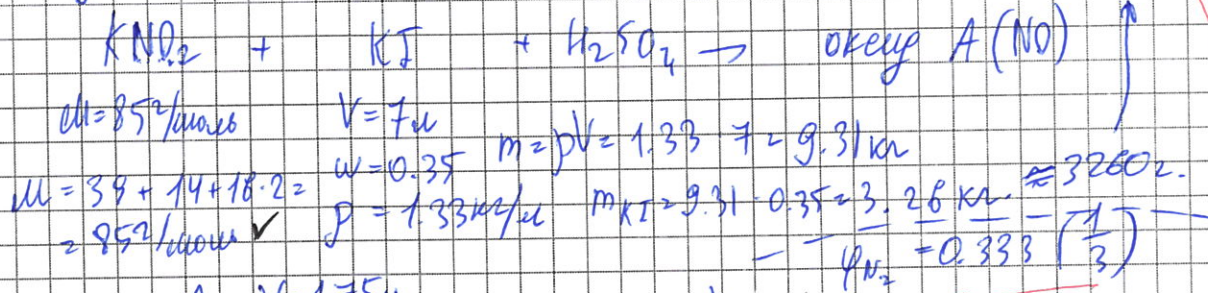 KNO₂ + KI + H₂SO₄ → оксид A (NO) ↑
M = 85 г/моль V = 7 л
m = ρV = 1.33 · 7 = 9.31 кг
ω = 0.35
M = 39 + 14 + 16·2 =
= 85 г/моль ✓ ρ = 1.33 кг/л m KI = 9.31 · 0.35 = 3.26 кг. ≈ 3260 г.
φ N₂ = 0.333 (1/3)